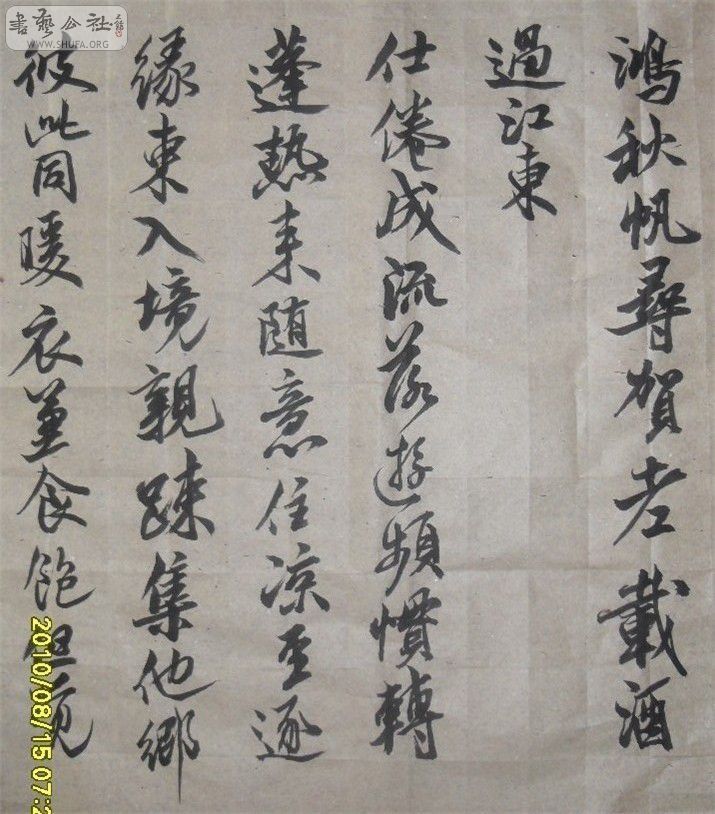 書藝公社
WWW.SHUFA.ORG
鴻秋帆尋賀老載酒
過江東
仕倦成流落遊頻慣轉
蓬熱来随意住凉至逐
緣東入境親踈集他鄉
彼此同暖衣兼食飽但覓
2010/08/15 07:2